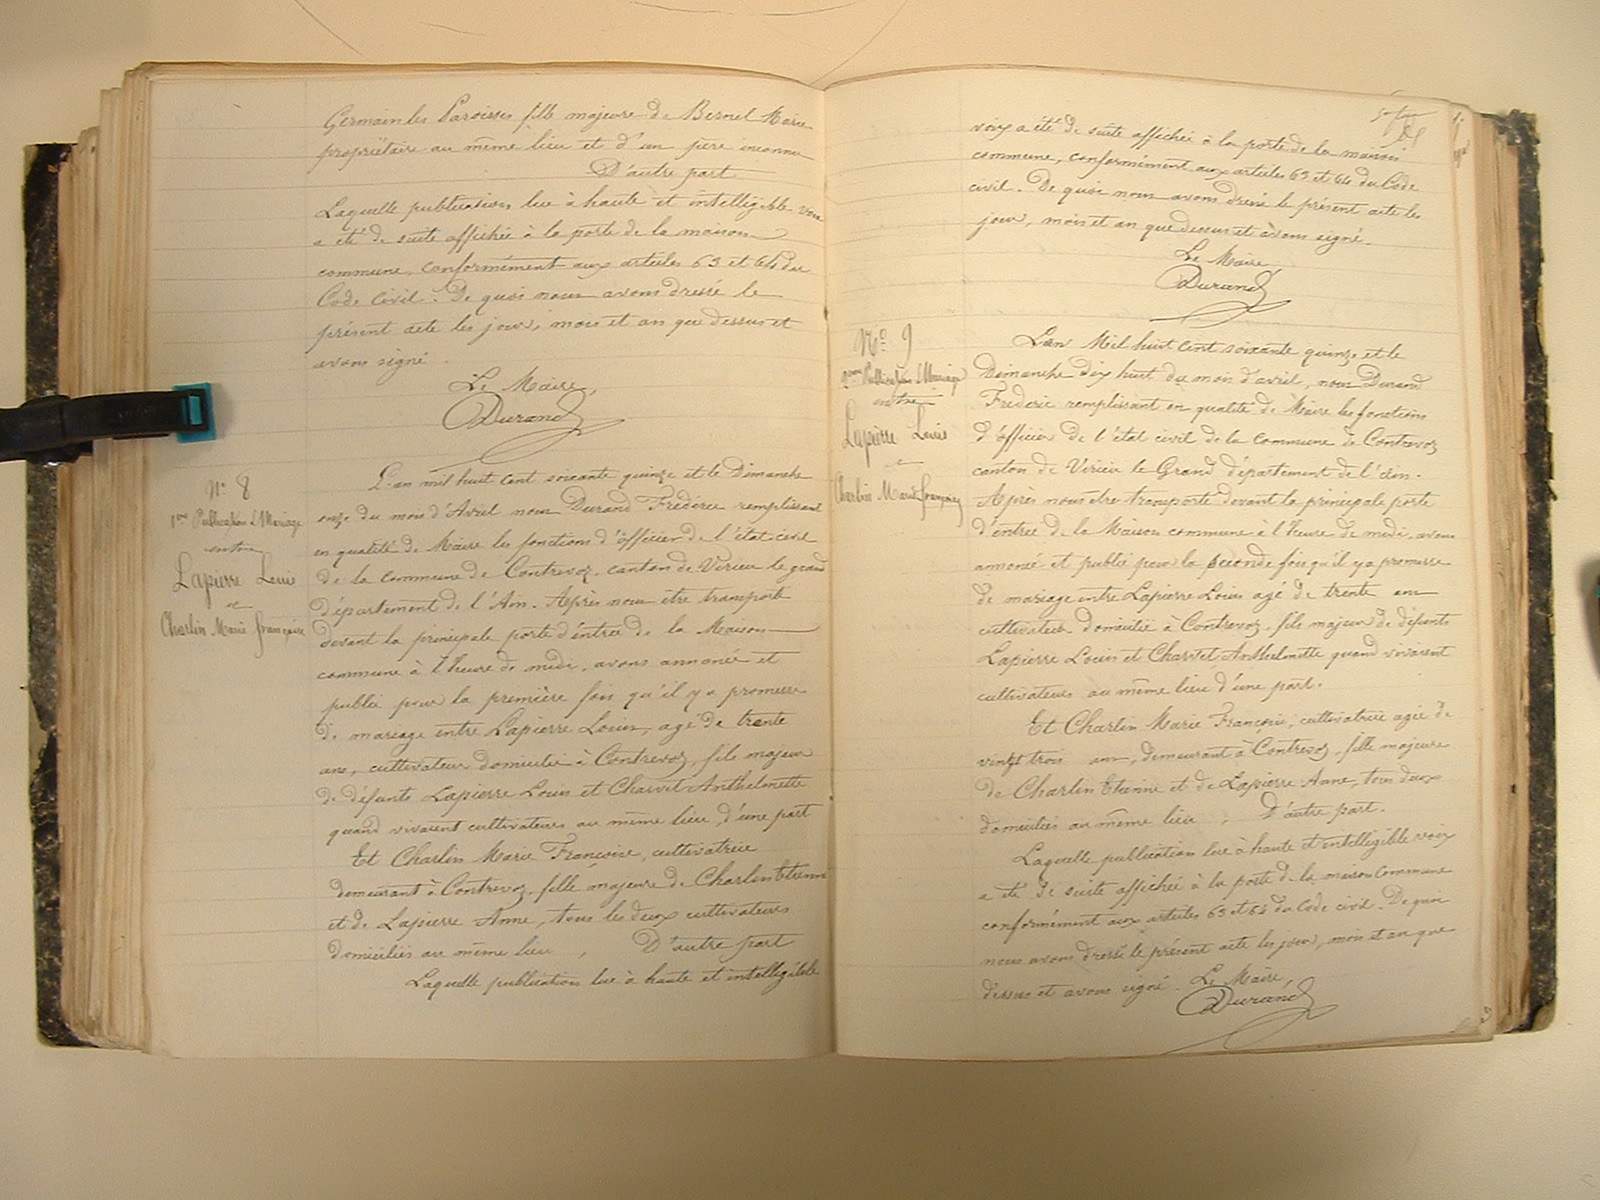 Germain les Paroisses fille majeure de Bernel Marie
propriétaire au même lieu et d'un père inconnu
D'autre part
Laquelle publication lue à haute et intelligible voix
a été de suite affichée à la porte de la maison
commune, conformément aux articles 63 et 64 du
Code Civil. De quoi nous avons dressé le
présent acte les jour, mois et an que dessus et
avons signé
Le Maire,
Durand
N° 8
1ère Publication de Mariage
entre
Lapierre Louis
et
Charlin Marie Françoise
L'an mil huit cent soixante quinze et le Dimanche
onze du mois d'Avril nous Durand Fréderic remplissant
en qualité de Maire les fonctions d'officier de l'état civil
de la commune de Contrevoz, canton de Virieu le grand
département de l'Ain. Après nous être transporté
devant la principale porte d'entrée de la Maison
commune à l'heure de midi, avons annoncé et
publié pour la première fois qu'il y a promesse
de mariage entre Lapierre Louis, agé de trente
ans, cultivateur domicilié à Contrevoz, fils majeur
de défunts Lapierre Louis et Charvet Anthelmette
quand vivaient cultivateurs au même lieu, d'une part
Et Charlin Marie Françoise, cultivatrice
demeurant à Contrevoz, fille majeure de Charlin Etienne
et de Lapierre Anne, tous les deux cultivateurs
domiciliés au même lieu, D'autre part
Laquelle publication lue à haute et intelligible
voix a été de suite affichée à la porte de la maison
commune, conformément aux articles 63 et 64 du Code
civil. De quoi nous avons dressé le présent acte les
jour, mois et an que dessus et avons signé.
Le Maire
Durand
N° 9
2ème Publication de Mariage
entre
Lapierre Louis
et
Charlin Marie Françoise
L'an Mil huit Cent soixante quinze et le
Dimanche Dix huit du mois d'avril, nous Durand
Fréderic remplissant en qualité de Maire les fonctions
d'officier de l'état civil de la commune de Contrevoz
canton de Virieu le Grand département de l'Ain.
Après nous être transporté devant la principale porte
d'entrée de la Maison commune à l'heure de midi, avons
annoncé et publié pour la seconde fois qu'il y a promesse
de mariage entre Lapierre Louis agé de trente ans
cultivateur domicilié à Contrevoz, fils majeur de défunts
Lapierre Louis et Charvet Anthelmette quand vivaient
cultivateurs au même lieu d'une part.
Et Charlin Marie Françoise, cultivatrice agée de
vingt trois ans, demeurant à Contrevoz, fille majeure
de Charlin Etienne et de Lapierre Anne, tous deux
domiciliés au même lieu, D'autre part.
Laquelle publication lue à haute et intelligible voix
a été de suite affichée à la porte de la maison Commune
conformément aux articles 63 et 64 du Code civil. De quoi
nous avons dressé le présent acte les jour, mois et an que
dessus et avons signé. Le Maire,
Durand